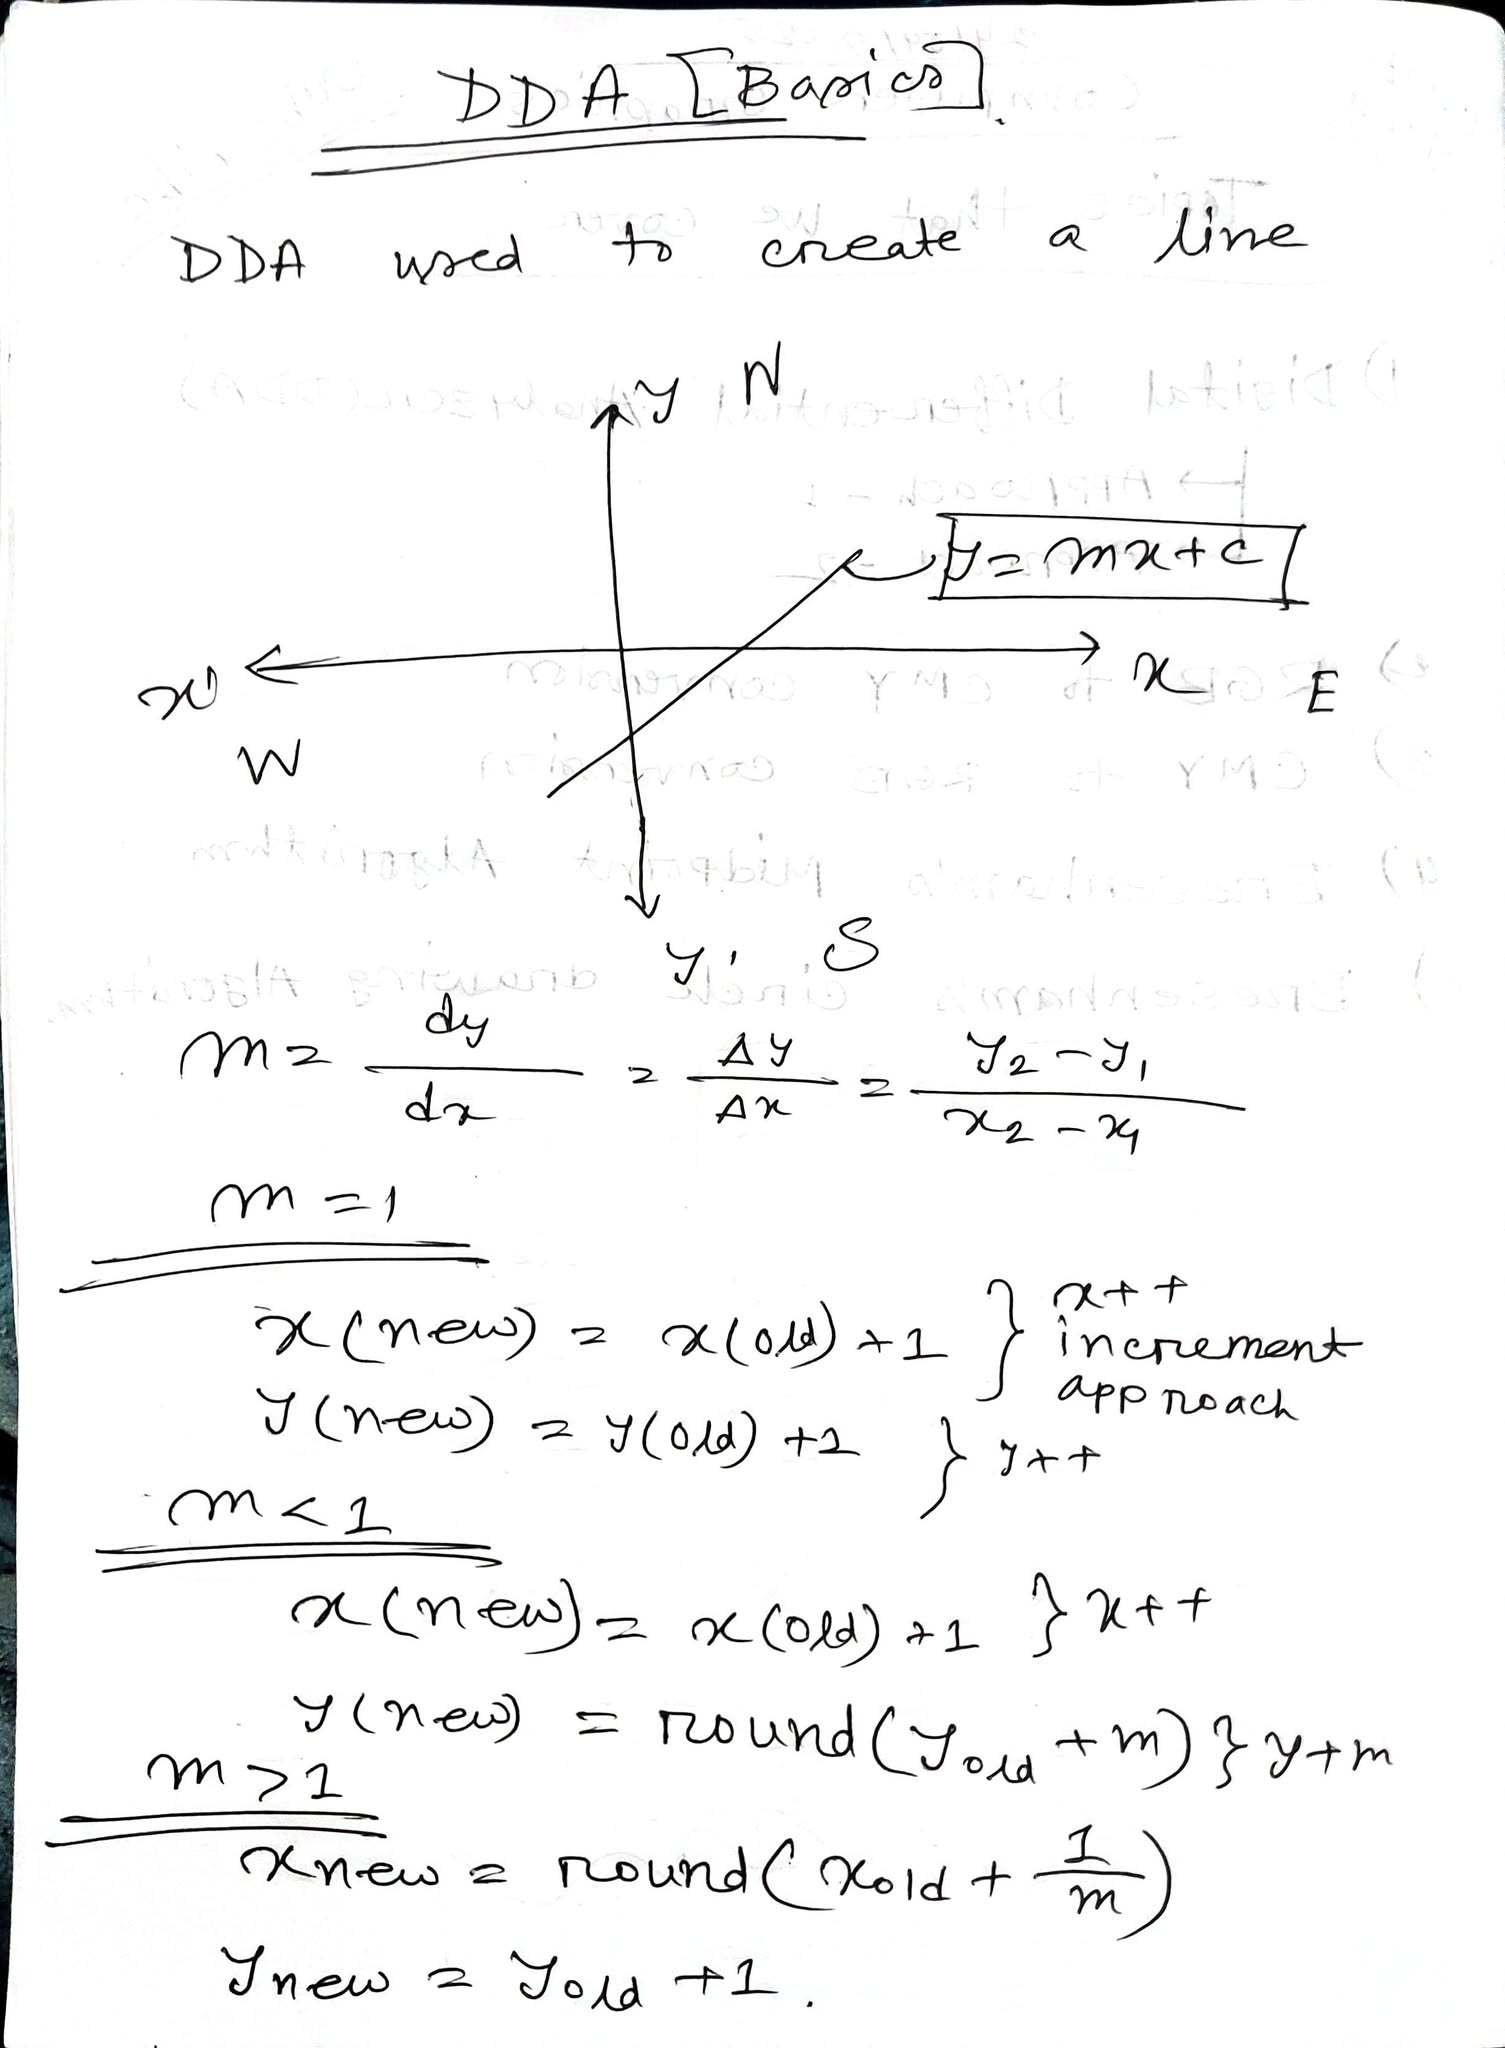 DDA [Basics].
DDA used to create a line
y N
y = mx + c
x' x E
W
y' S
m = dy/dx = Δy/Δx = y2 - y1/x2 - x1
m = 1
x(new) = x(old) + 1 } x++
increment
approach
y(new) = y(old) + 1 } y++
m < 1
x(new) = x(old) + 1 } x++
y(new) = round(yold + m) } y+m
m > 1
xnew = round(xold + 1/m)
ynew = yold + 1.